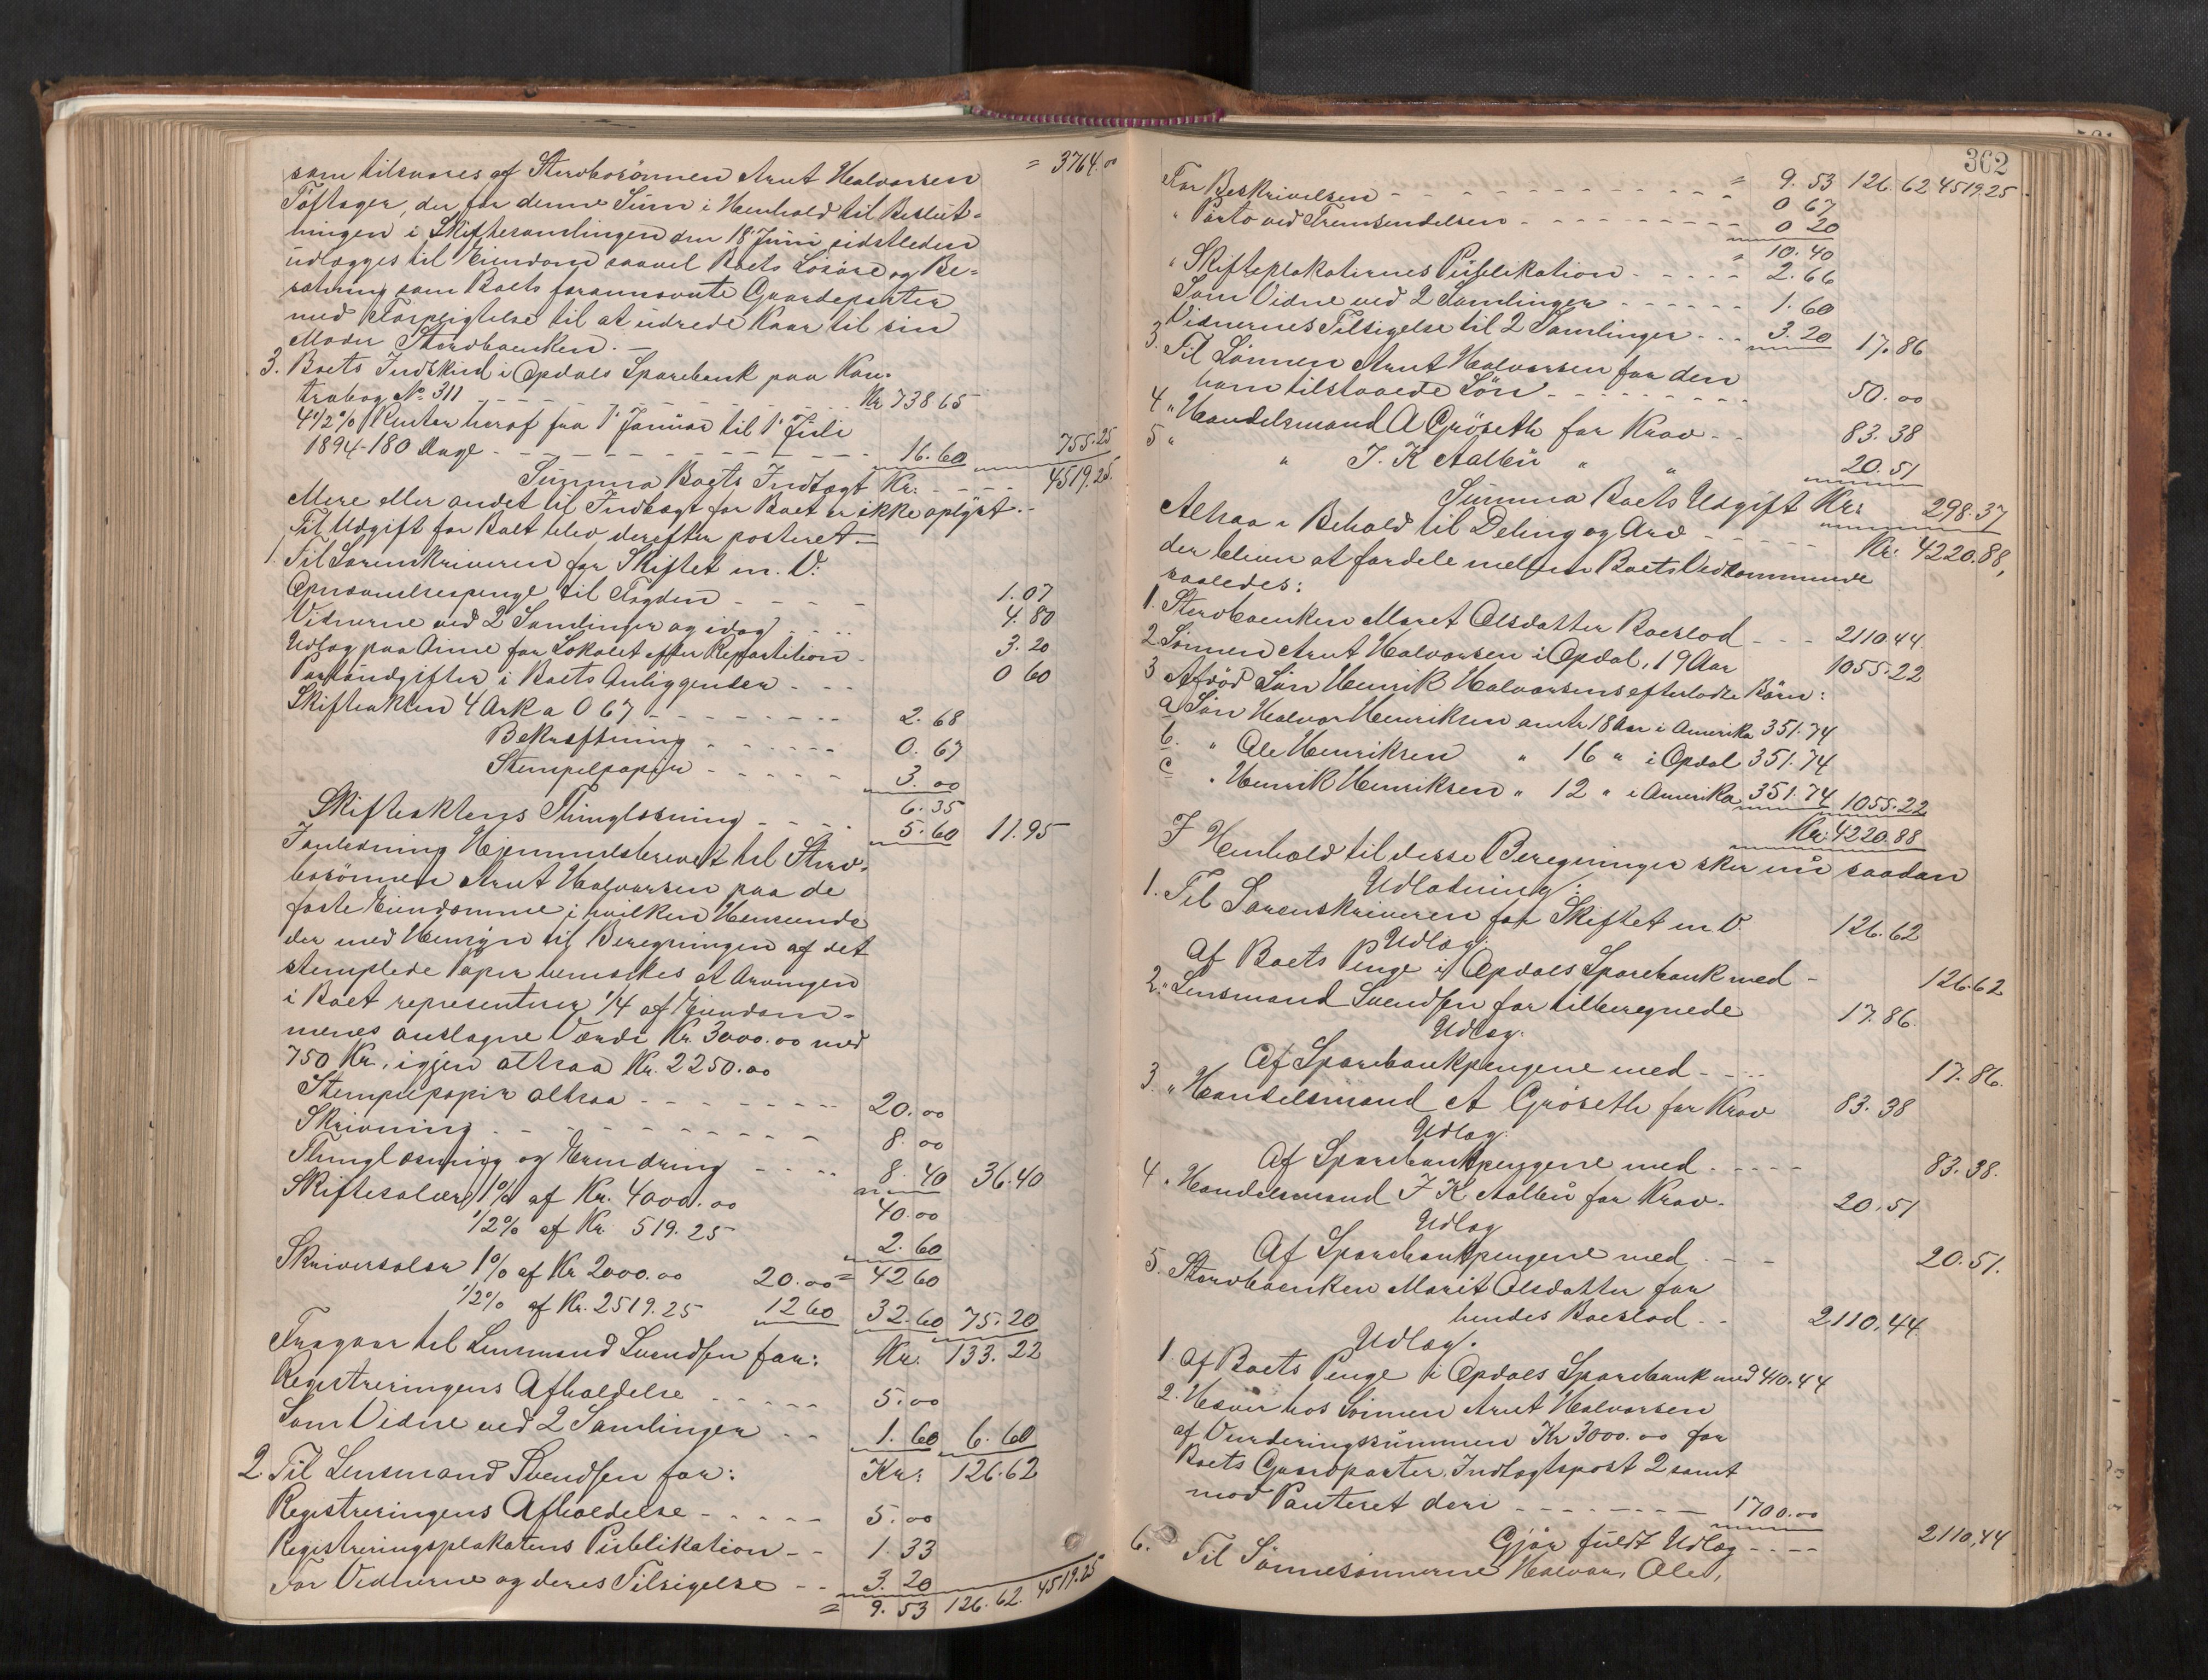 som tilsvares af Stervbosönnen Arnt Halvorsen = 3764.00
Töftager, der for denne Sum i Henhold til Beslut-
ningen i Skiftesamlingen den 18 Juni sidstleden
udlægges til Eiendom saavel Boets Lösöre og Be-
sætning som Boets forannævnte Gaardeparter
med Forpligtelse til at udrede Kaar til sin
Moder Stervboenken. -
3. Boets Indskud i Opdals Sparebank paa Kon-
trabog No 311 Kr 738 65
4 1/2 % Renter heraf fra 1' Januar til 1' Juli
1894 - 180 Dage 16.60 755.25
Summa Boets Indtægt Kr. 4519.25.
Mere eller andet til Indtægt for Boet er ikke oplyst.-
Til Udgift for Boet blev derefter posteret.-
1. Til Sorenskriveren for Skiftet m. V:
Opnævnelsespenge til Fogden 1.07
Vidnerne ved 2 Samlinger og idag 4.80
Udlæg paa Aune for Lokalet efter Repartition 3.20
Portoudgifter i Boets Anliggender 0 60
Skifteakten 4 Ark a 0 67 2.68
Bekræftning 0.67
Stempelpapir 3.00
6.35
Skifteaktens Thinglæsning 5.60 11.95
I anledning Hjemmelsbrevet til Sterv-
bosönnen Arnt Halvorsen paa de
faste Eiendomme i hvilken Henseende
der med Hensyn til Beregningen af det
stemplede Papir bemærkes at Arvingen
i Boet representerer 1/4 af Eiendom-
menes anslagne Værdi Kr. 3000.00 med
750 Kr., igjen altsaa Kr. 2250.00
Stempelpapir altsaa 20.00
Skrivning 8.00
Thinglæsning og Erindring 8.40 36.40
Skiftesalær 1% af Kr. 4000.00 40.00
1/2% af Kr. 519.25 2.60
Skriversalær 1% af Kr 2000.00 20.00 = 42 60
1/2% af Kr. 2519.25 12 60 32.60 75.20
Fragaar til Lensmand Svendsen for: Kr. 133.22
Registreringens Afholdelse 5.00
Som Vidne ved 2 Samlinger 1.60 6.60
2. Til Lensmand Svendsen for: Kr: 126.62
Registreringens Afholdelse 5.00
Registreringsplakatens Publikation 1.33
For Vidnerne og deres Tilsigelse 3.20
= 9.53 126.62. 4519.25
362
For Beskrivelsen = 9.53 126.62 4519.25
0 67
" Porto ved Fremsendelsen 0 20
" 10.40
" Skifteplakaternes Publikation 2.66
Som Vidne ved 2 Samlinger 1.60
Vidnernes Tilsigelse til 2 Samlinger 3.20 17.86
3. Til Sönnen Arnt Halvorsen for den
ham tilstaaede Lön 50.00
4 " Handelsmand A Gröseth for Krav 83.38
5 " " J. K Aalbu " " 20.51
Summa Boets Udgift Kr: 298.37
Altsaa i Behold til Deling og Arv Kr. 4220.88,
der bliver at fordele mellem Boets Vedkommende
saaledes:
1. Stervboenken Maret Olsdatter Boeslod 2110.44.
2 Sönnen Arnt Halvorsen i Opdal, 19 Aar 1055.22
3 Afdöd Sön Henrik Halvorsens efterladte Börn:
a) Sön Halvor Henriksen omtr 18 Aar i Amerika 351.74
b. " Ole Henriksen " 16 " i Opdal 351.74
c " Henrik Henriksen " 12 " i Amerika 351.74 1055.22
Kr. 4220.88
I Henhold til disse Beregninger sker nu saadan
Udlodning:
1. Til Sorenskriveren for Skiftet m V. 126.62
Udlæg:
Af Boets Penge i Opdals Sparebank med 126.62
2. " Lensmand Svendsen for tilberegnede 17.86.
Udlæg.
Af Sparebankpengene med 17.86.
3. " Handelsmand A Gröseth for Krav 83.38
Udlæg.
Af Sparebankpengene med 83.38.
4. " Handelsmand J K Aalbu for Krav. 20.51
Udlæg
Af Sparebankpengene med 20.51.
5. Stervboenken Marit Olsdatter for
hendes Boeslod 2110.44.
Udlæg.
1. Af Boets Penge i Opdals Sparebank med 410.44
2. Haver hos Sönnen Arnt Halvorsen
af Vurderingssummen Kr 3000.00 for
Boets Gaardparter, Indtægtspost 2 samt
mod Panteret deri 1700.00
Gjör fuldt Udlæg 2110,44
6. Til Sönnesönnerne Halvor, Ole,